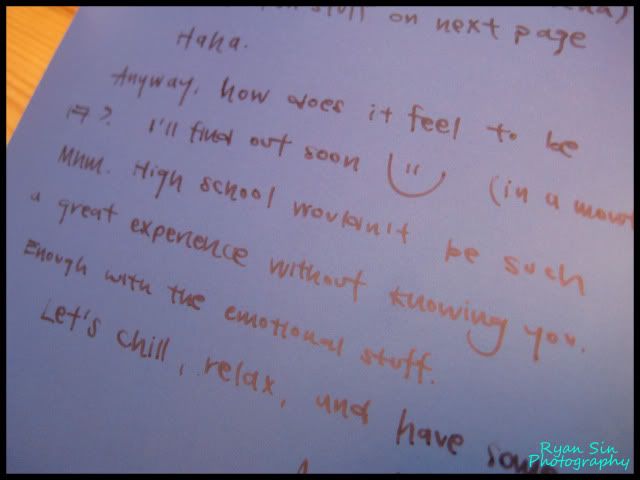 stuff on next page
Haha.
Anyway, how does it feel to be
17? I'll find out soon (in a
Mhm. High school wouldn't be such
a great experience without knowing you.
Enough with the emotional stuff.
Let's chill, relax, and have some
Ryan Sin
Photography